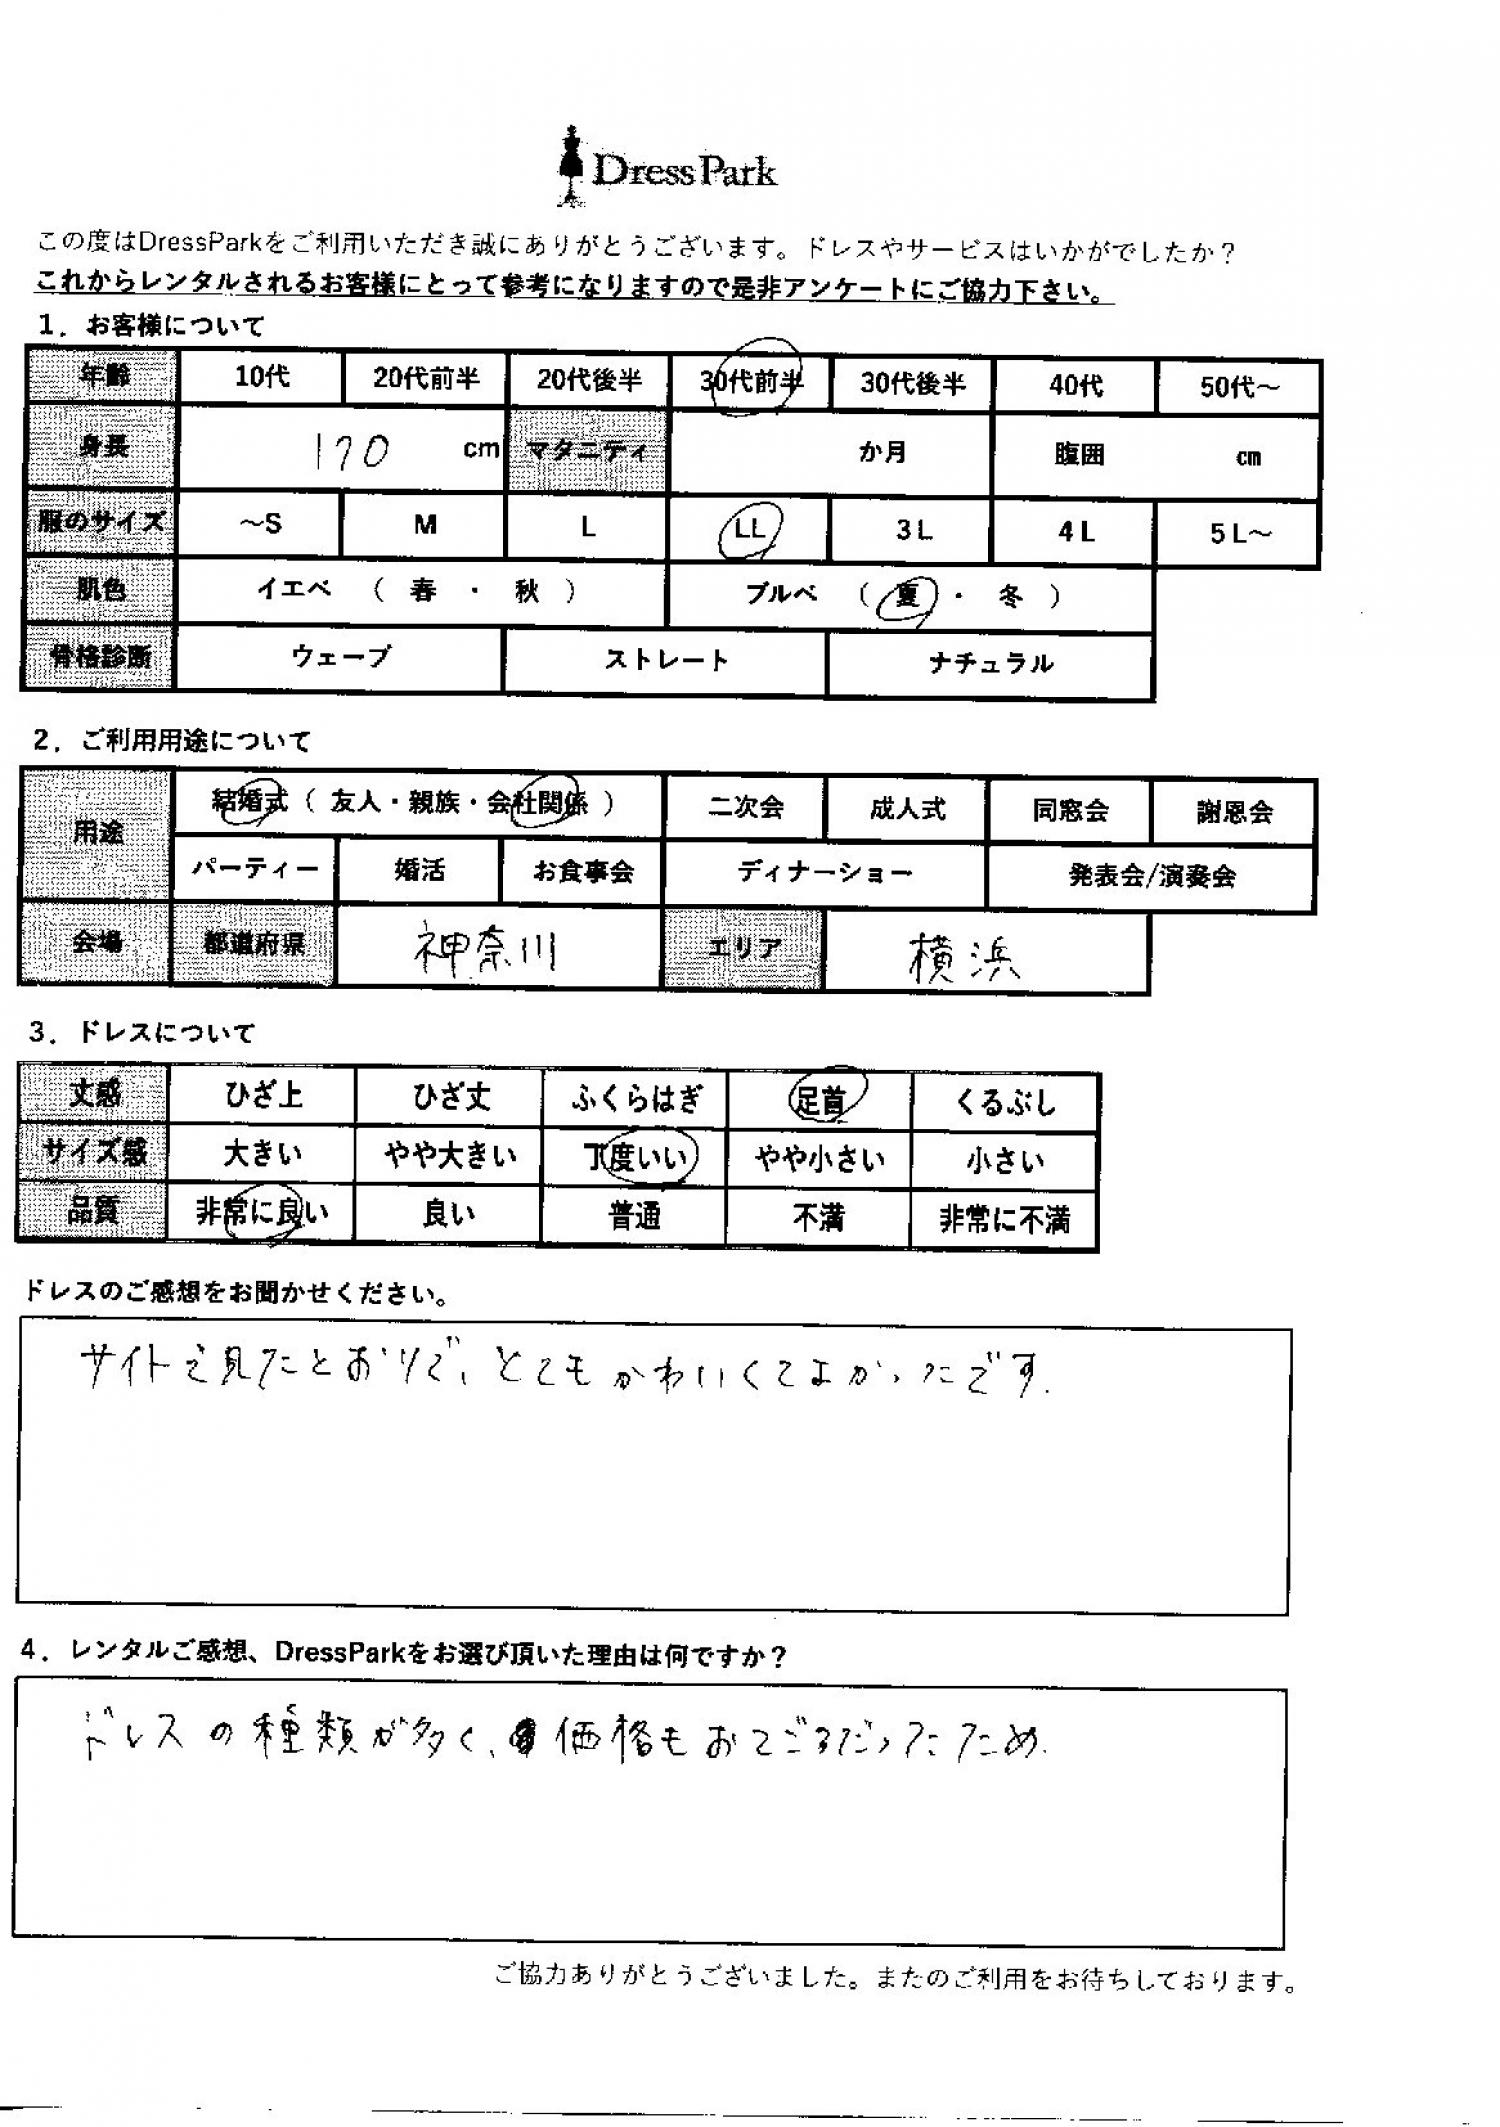 DressPark
この度はDressParkをご利用いただき誠にありがとうございます。ドレスやサービスはいかがでしたか？
これからレンタルされるお客様にとって参考になりますので是非アンケートにご協力下さい。
1．お客様について
年齢 10代 20代前半 20代後半 30代前半 30代後半 40代 50代～
身長 170 cm マタニティ か月 腹囲 cm
服のサイズ ～S M L LL 3L 4L 5L～
肌色 イエベ （ 春 ・ 秋 ） ブルベ （ 夏 ・ 冬 ）
骨格診断 ウェーブ ストレート ナチュラル
2．ご利用用途について
用途 結婚式（ 友人・親族・会社関係 ） 二次会 成人式 同窓会 謝恩会
パーティー 婚活 お食事会 ディナーショー 発表会/演奏会
会場 都道府県 神奈川 エリア 横浜
3．ドレスについて
丈感 ひざ上 ひざ丈 ふくらはぎ 足首 くるぶし
サイズ感 大きい やや大きい 丁度いい やや小さい 小さい
品質 非常に良い 良い 普通 不満 非常に不満
ドレスのご感想をお聞かせください。
サイトで見たとおりで、とてもかわいくてよかったです.
4．レンタルご感想、DressParkをお選び頂いた理由は何ですか？
ドレスの種類が多く、価格もおてごろだったため.
ご協力ありがとうございました。またのご利用をお待ちしております。